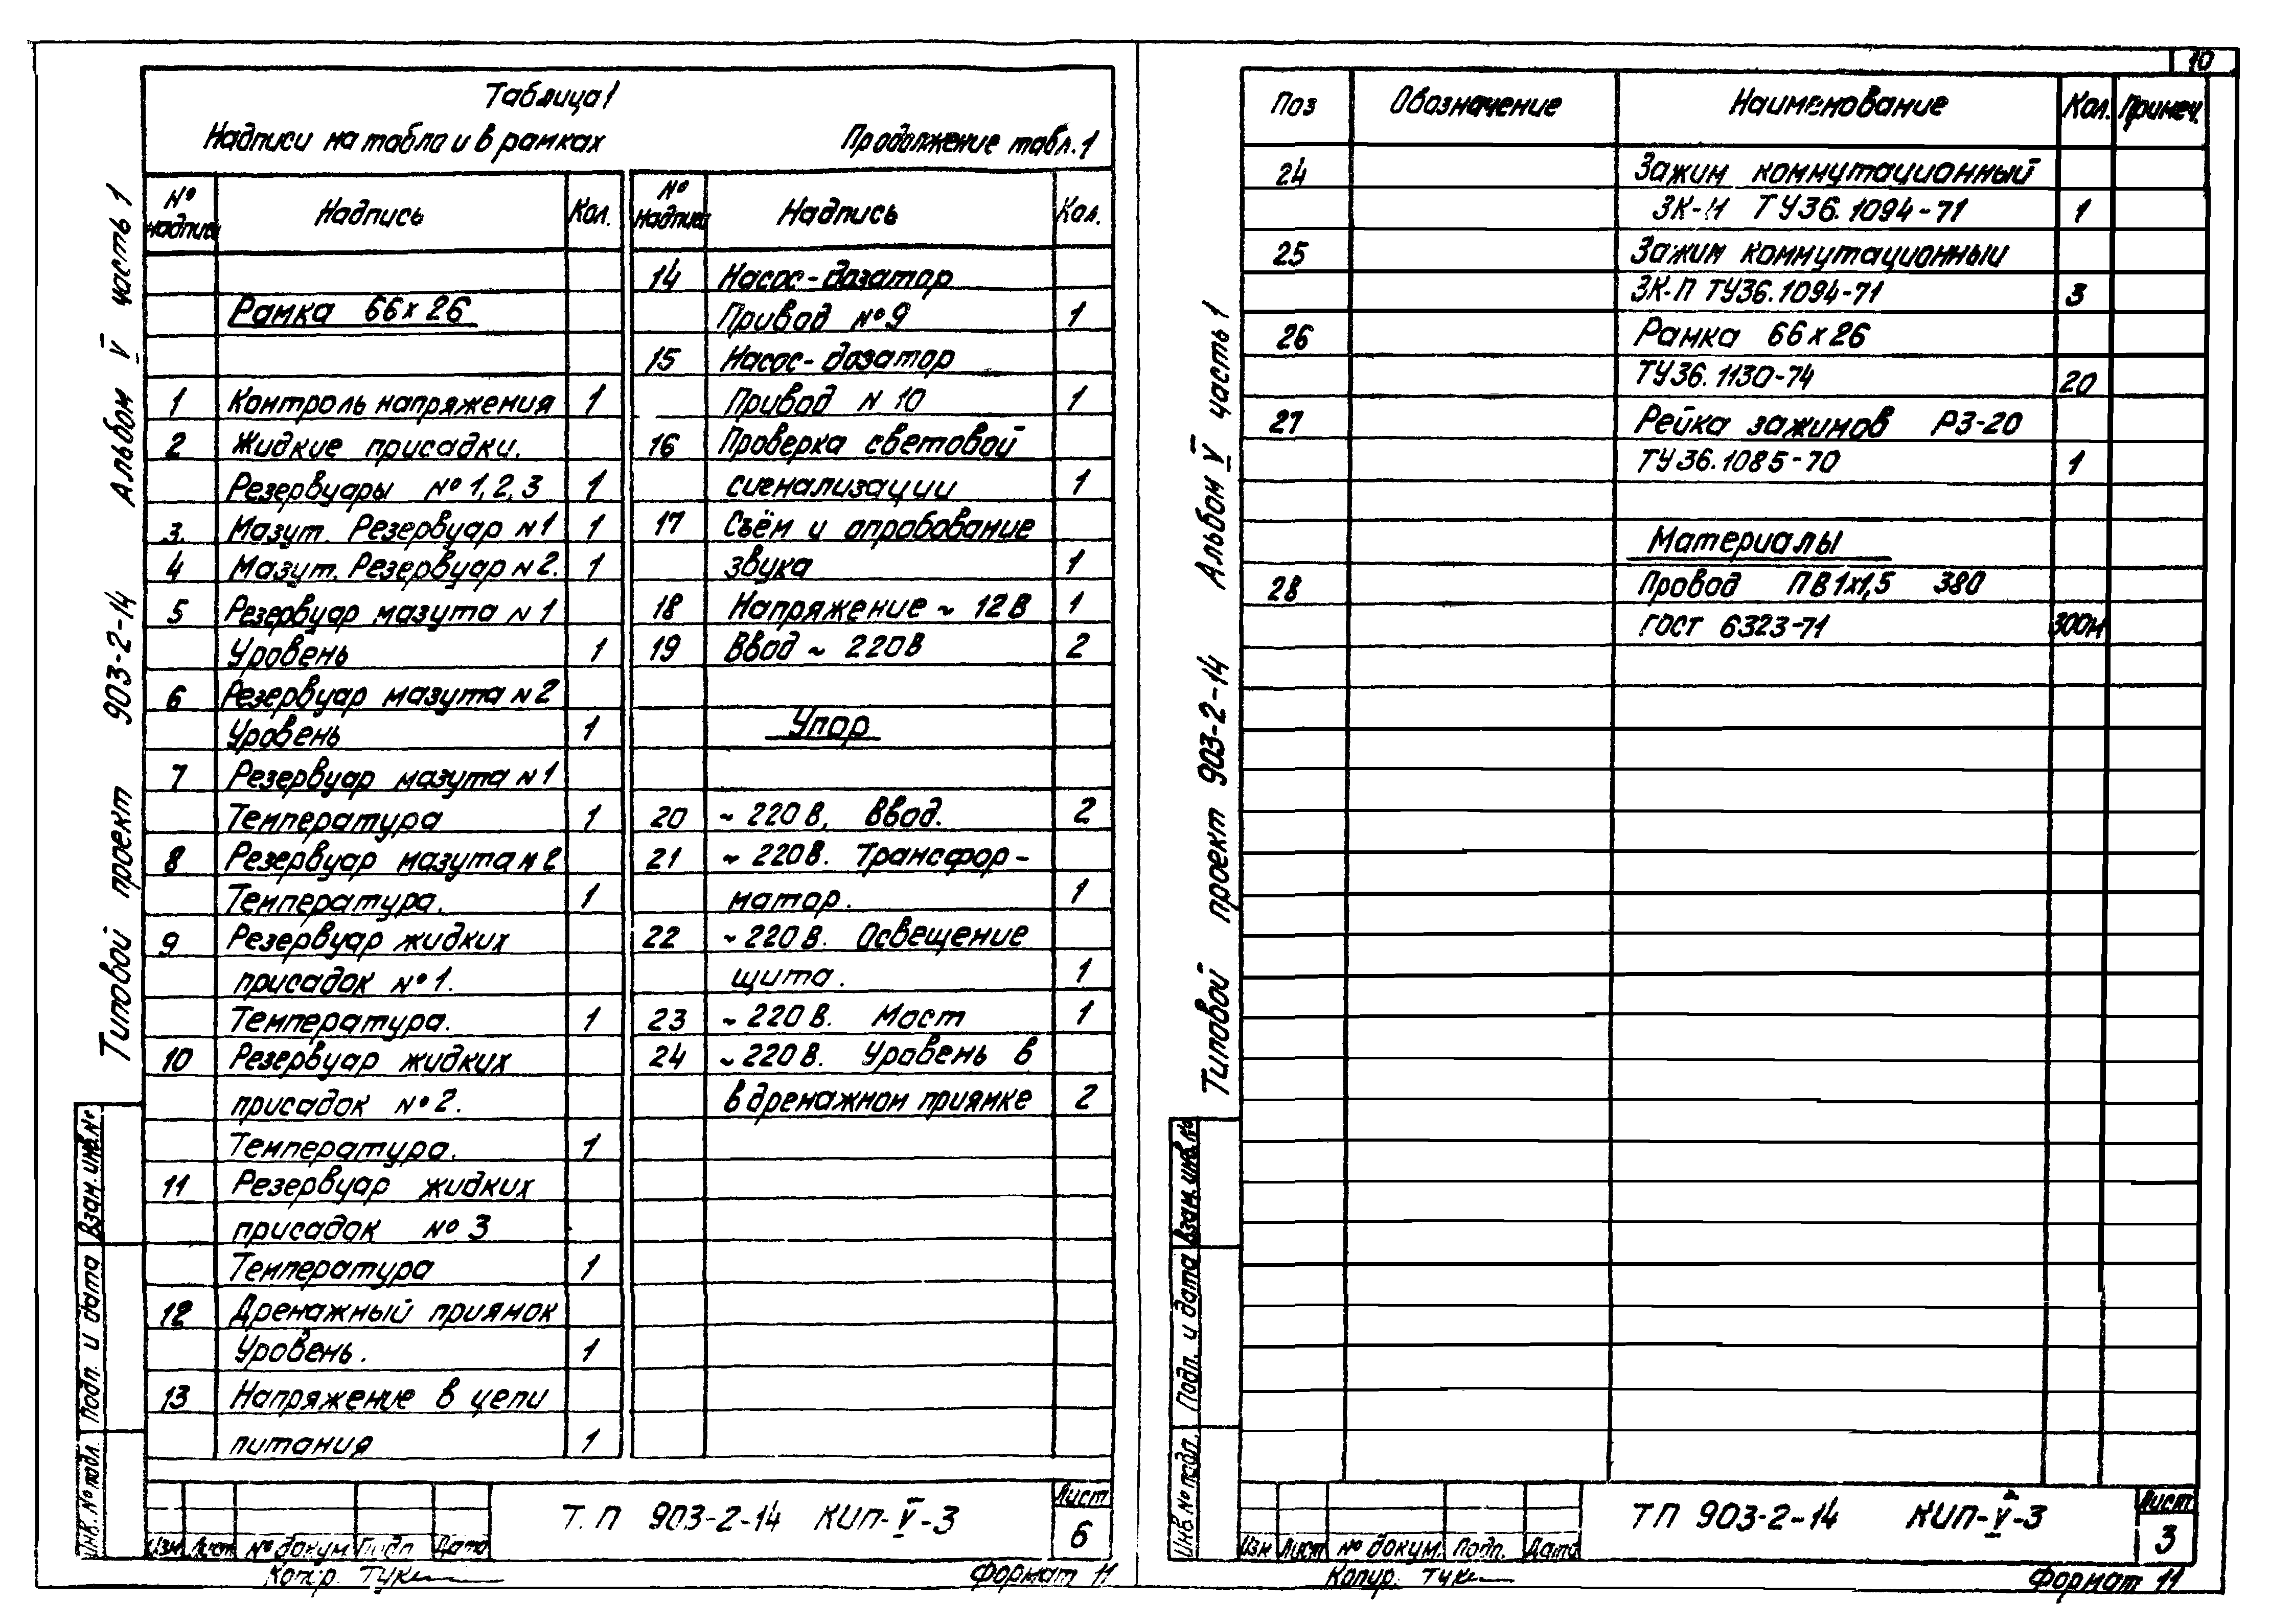 10
Таблица 1
Надписи на табло и в рамках Продолжение табл. 1
№ надписи Надпись Кол.
Рамка 66х26
1 Контроль напряжения 1
2 Жидкие присадки.
Резервуары №1,2,3 1
3. Мазут. Резервуар №1 1
4 Мазут. Резервуар №2. 1
5 Резервуар мазута №1
Уровень 1
6 Резервуар мазута №2
Уровень 1
7 Резервуар мазута №1
Температура 1
8 Резервуар мазута №2
Температура. 1
9 Резервуар жидких
присадок №1.
Температура. 1
10 Резервуар жидких
присадок №2.
Температура. 1
11 Резервуар жидких
присадок №3
Температура 1
12 Дренажный приямок
Уровень. 1
13 Напряжение в цепи
питания 1
№ надписи Надпись Кол.
14 Насос-дозатор
Привод №9 1
15 Насос-дозатор
Привод N 10 1
16 Проверка световой
сигнализации 1
17 Съём и опробование
звука 1
18 Напряжение ~ 12В 1
19 Ввод ~ 220В 2
Упор
20 ~ 220В, Ввод. 2
21 ~ 220В. Трансфор-
матор. 1
22 ~ 220В. Освещение
щита. 1
23 ~ 220В. Мост 1
24 ~ 220В. Уровень в
в дренажном приямке 2
Типовой проект 903-2-14 Альбом V часть 1
Взам. инв. №
Подп. и дата
Инв. № подл.
Изм Лист № докум. Подп Дата
Т.П 903-2-14 КИП-V-3
Лист
6
Копир.
Формат 11
Поз Обозначение Наименование Кол. Примеч.
24 Зажим коммутационный
ЗК-Н ТУ36.1094-71 1
25 Зажим коммутационный
ЗК-П ТУ36.1094-71 3
26 Рамка 66х26
ТУ36.1130-74 20
27 Рейка зажимов РЗ-20
ТУ36.1085-70 1
Материалы
28 Провод ПВ1х1,5 380
ГОСТ 6323-71 300м
Типовой проект 903-2-14 Альбом V часть 1
Взам. инв. №
Подп. и дата
Инв. № подл.
Изм Лист № докум. Подп. Дата
ТП 903-2-14 КИП-V-3
Лист
3
Копир.
Формат 11